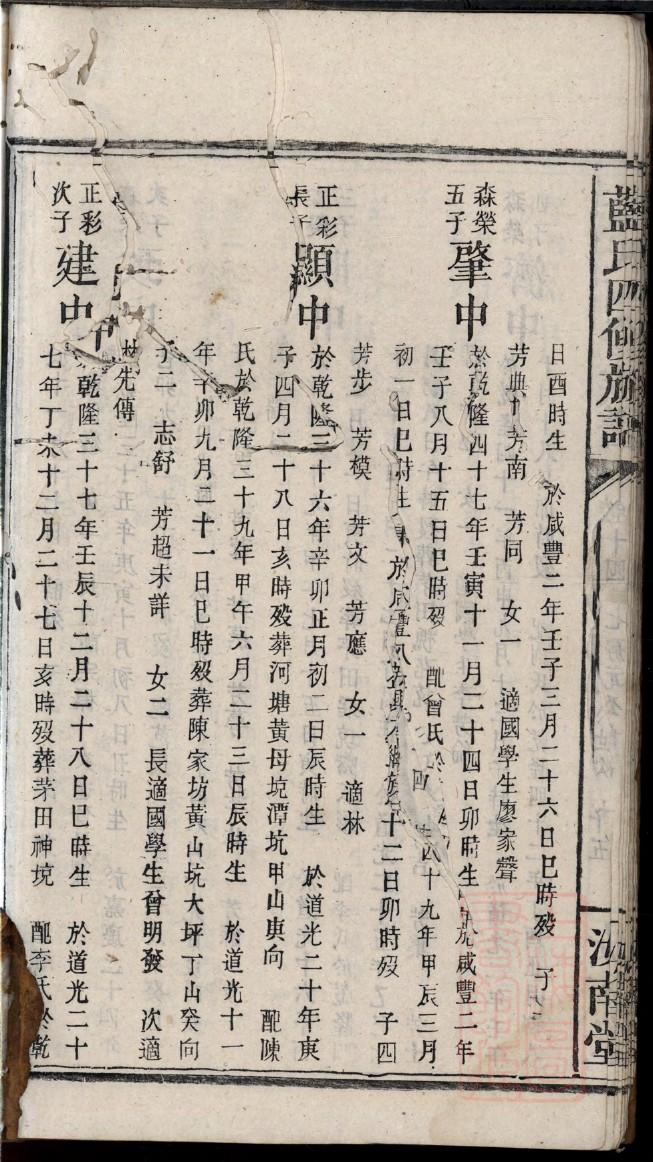 藍氏四修族譜
汝南堂
日酉時生 於咸豐二年壬子三月二十六日巳時歿 子
芳典 芳南 芳同 女一 適國學生廖家聲
森榮五子 肇中 於乾隆四十七年壬寅十一月二十四日卯時生 於咸豐二年
壬子八月十五日巳時歿 配曾氏於 四十九年甲辰三月
初一日巳時生 於咸豐 十二日卯時歿 子四
芳步 芳模 芳文 芳應 女一 適林
正彩長子 顯中 於乾隆三十六年辛卯正月初二日辰時生 於道光二十年庚
子四月二十八日亥時歿葬河塘黃母坑潭坑甲山庚向 配陳
氏於乾隆三十九年甲午六月二十三日辰時生 於道光十一
年辛卯九月二十一日巳時歿葬陳家坊黃山坑大坪丁山癸向
子二 志舒 芳超未詳 女二 長適國學生曾明發 次適
林先傳
正彩次子 建中 於乾隆三十七年壬辰十二月二十八日巳時生 於道光二十
七年丁未十二月二十七日亥時歿葬茅田神境 配李氏於乾